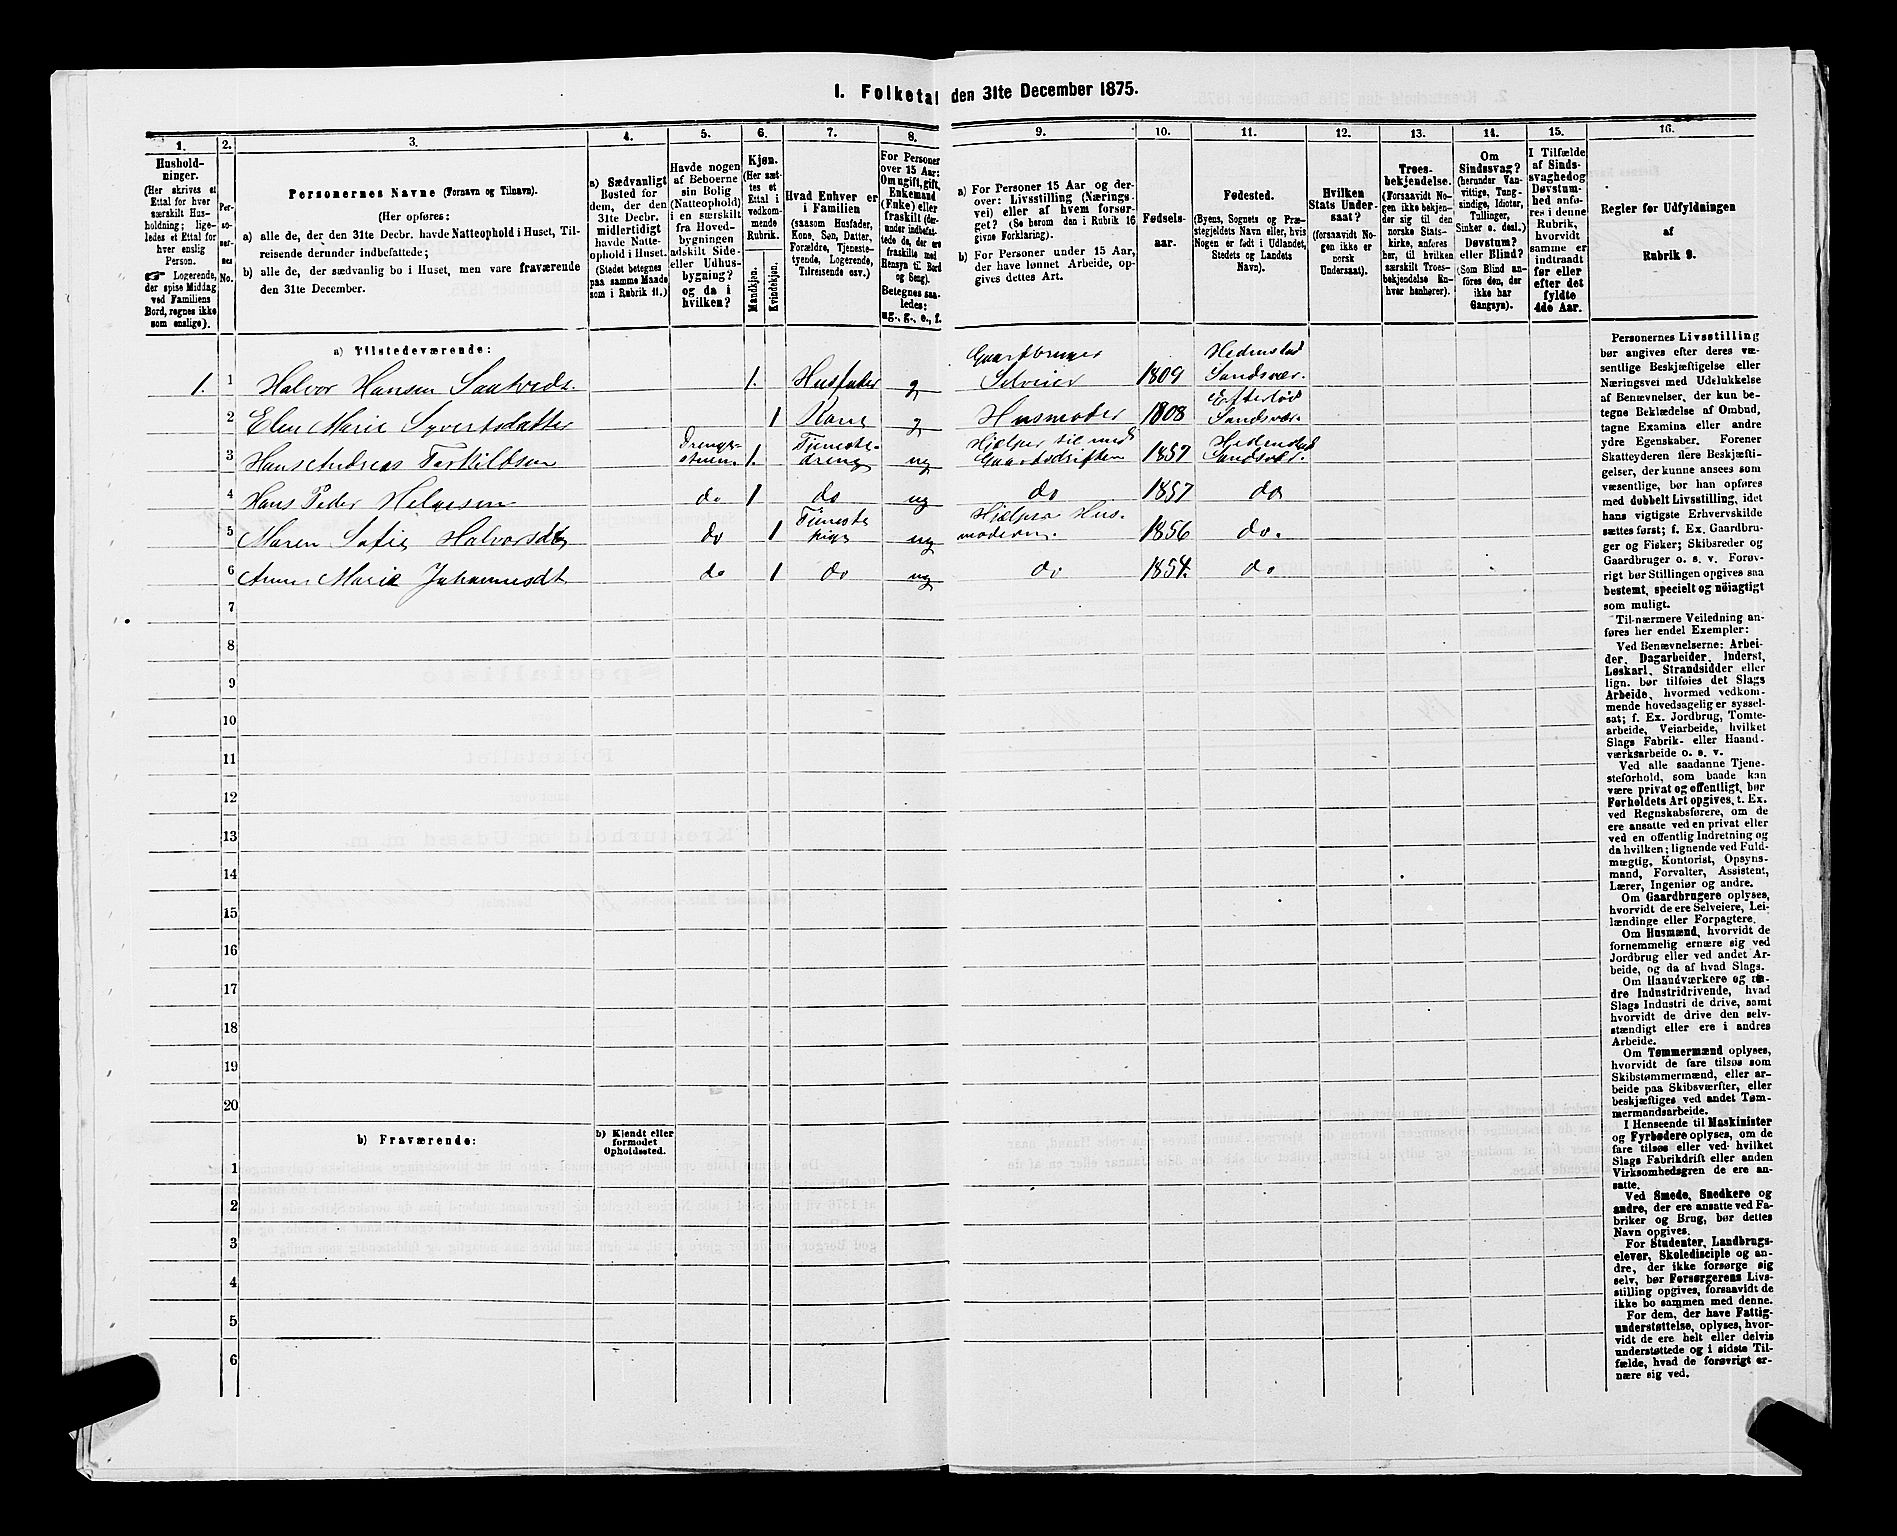 1. Folketal den 31te December 1875.
1.
Hushold-
ninger.
(Her skrives et
Ettal for hver
særskilt Hus-
holdning; lige-
ledes et Ettal for
hver enslig
Person.
☞ Logerende,
der spise Middag
ved Familiens
Bord, regnes ikke
som enslige).
2.
Per-
so-
ner-
nes
No.
3.
Personernes Navne (Fornavn og Tilnavn).
(Her opføres:
a) alle de, der den 31te Decbr. havde Natteophold i Huset, Til-
reisende derunder indbefattede;
b) alle de, der sædvanlig bo i Huset, men vare fraværende
den 31te December.
4.
a) Sædvanligt
Bosted for
dem, der den
31te Decbr.
midlertidigt
havde Natte-
ophold i Huset.
(Stedet betegnes
paa samme Maade
som i Rubrik 11.)
5.
Havde nogen
af Beboerne
sin Bolig
(Natteophold)
i en særskilt
fra Hoved-
bygningen
adskilt Side-
eller Udhus-
bygning?
og da i
hvilken?
6.
Kjøn.
(Her sæt-
tes et
Ettal i
vedkom-
mende
Rubrik.
Mandkjøn.
Kvindekjøn.
7.
Hvad Enhver er
i Familien
(saasom Husfader,
Kone, Søn, Datter,
Forældre, Tjeneste-
tyende, Logerende,
Tilreisende osv.)
8.
For Personer
over 15 Aar:
Om ugift, gift,
Enkemand
(Enke) eller
fraskilt (der-
under indbefat-
tede de, der ere
fraskilte med
Hensyn til Bord
og Seng).
Betegnes saa-
ledes:
ug., g., e., f.
9.
a) For Personer 15 Aar og der-
over: Livsstilling (Nærings-
vei) eller af hvem forsør-
get? (Se herom den i Rubrik 16
givne Forklaring).
b) For Personer under 15 Aar,
der have lønnet Arbeide, op-
gives dettes Art.
10.
Fødsels-
aar.
11.
Fødested.
(Byens, Sognets og Præ-
stegjeldets Navn eller, hvis
Nogen er født i Udlandet,
Stedets og Landets
Navn).
12.
Hvilken
Stats Under-
saat?
(forsaavidt No-
gen ikke er
norsk
Undersaat).
13.
Troes-
bekjendelse.
(Forsaavidt No-
gen ikke bekjen-
der sig til den
norske Stats-
kirke, anføres
her, til hvilken
særskilt Troes-
bekjendelse En-
hver henhører).
14.
Om
Sindssvag?
(herunder Van-
vittige, Tung-
sindige, Idioter,
Tullinger,
Sinker o. desl.)
Døvstum?
eller Blind?
(Som Blind an-
føres den, der
ikke har
Gangsyn).
15.
I Tilfælde
af Sinds-
svaghed og
Døvstum-
hed anfø-
res i denne
Rubrik,
hvorvidt
samme er
indtraadt
før eller
efter det
fyldte
4de Aar.
16.
Regler for Udfyldningen
af
Rubrik 9.
a) Tilstedeværende:
1. 1 Halvor Hansen Saatvedt. 1. Husfader g Gaardbruger Selveier 1809 Hedenstad Sandsvær.
2 Elen Marie Syvertsdatter 1 Kone g Husmoder 1808 Efteløt Sandsvær.
3 Hans Andreas Torkildsen Drenge-stuen. 1. Tjeneste-dreng ug Hjælper til med Gaardsdriften 1857 Hedenstad Sandsvær.
4 Hans Peder Helgesen do 1 do ug do 1857 do
5 Maren Sofie Halvorsdtr do 1 Tjeneste pige ug Hjælper Hus-moderen. 1856 do.
6 Anne Marie Johannesdt do 1 do ug do 1854. do
7
8
9
10
11
12
13
14
15
16
17
18
19
20
b) Fraværende:
b) Kjendt eller
formodet
Opholdssted.
1
2
3
4
5
6
Personernes Livsstilling
bør angives efter deres væ-
sentlige Beskjæftigelse eller
Næringsvei med Udelukkelse
af Benævnelser, der kun be-
tegne Beklædelse af Ombud,
tagne Examina eller andre
ydre Egenskaber. Forener
Skatteyderen flere Beskjæfti-
gelser, der kunne ansees som
væsentlige, bør han opføres
med dobbelt Livsstilling, idet
hans vigtigste Erhvervskilde
sættes først; f. Ex. Gaardbru-
ger og Fisker; Skibsreder og
Gaardbruger o. s. v. Forøv-
rigt bør Stillingen opgives saa
bestemt, specielt og nöiagtigt
som muligt.
Til nærmere Veiledning an-
føres her endel Exempler:
Ved Benævnelserne: Arbei-
der, Dagarbeider, Inderst,
Løskarl, Strandsidder eller
lign. bør tilføies det Slags
Arbeide, hvormed vedkom-
mende hovedsagelig er syssel-
sat; f. Ex. Jordbrug, Tomte-
arbeide, Veiarbeide, hvilket
Slags Fabrik- eller Haand-
værksarbeide o. s. v.
Ved alle saadanne Tjene-
steforhold, som baade kan
være privat og offentligt, bør
Forholdets Art opgives, t. Ex.
ved Regnskabsførere, om de
ere ansatte ved en privat eller
ved en offentlig Indretning og
da hvilken; lignende ved Fuld-
mægtig, Kontorist, Opsyns-
mand, Forvalter, Assistent,
Lærer, Ingeniør og andre.
Om Gaardbrugere oplyses,
hvorvidt de ere Selveiere, Lei-
lændinge eller Forpagtere.
Om Husmænd, hvorvidt de
fornemmelig ernære sig ved
Jordbrug eller ved andet Ar-
beide, og da af hvad Slags.
Om Haandværkere og an-
dre Industridrivende, hvad
Slags Industri de drive, samt
hvorvidt de drive den selv-
stændigt eller ere i andres
Arbeide.
Om Tømmermænd oplyses,
hvorvidt de fare tilsøs som
Skibstømmermænd, eller ar-
beide paa Skibsværfter, eller
beskjæftiges ved andet Tøm-
mermandsarbeide.
I Henseende til Maskinister
og Fyrbødere oplyses, om de
fare tilsøs eller ved hvilket
Slags Fabrikdrift eller anden
Virksomhedsgren de ere an-
satte.
Ved Smede, Snedkere og
andre, der ere ansatte ved Fa-
briker og Brug, bør dettes
Navn opgives.
For Studenter, Landbrugs-
elever, Skoledisciple og an-
dre, der ikke forsørge sig
selv, bør Forsørgerens Livs-
stilling opgives, forsaavidt de
ikke bo sammen med denne.
For dem, der have Fattig-
understøttelse, oplyses, hvor-
vidt de ere helt eller delvis
understøttede og i sidste Til-
fælde, hvad de forøvrigt er-
nære sig ved.